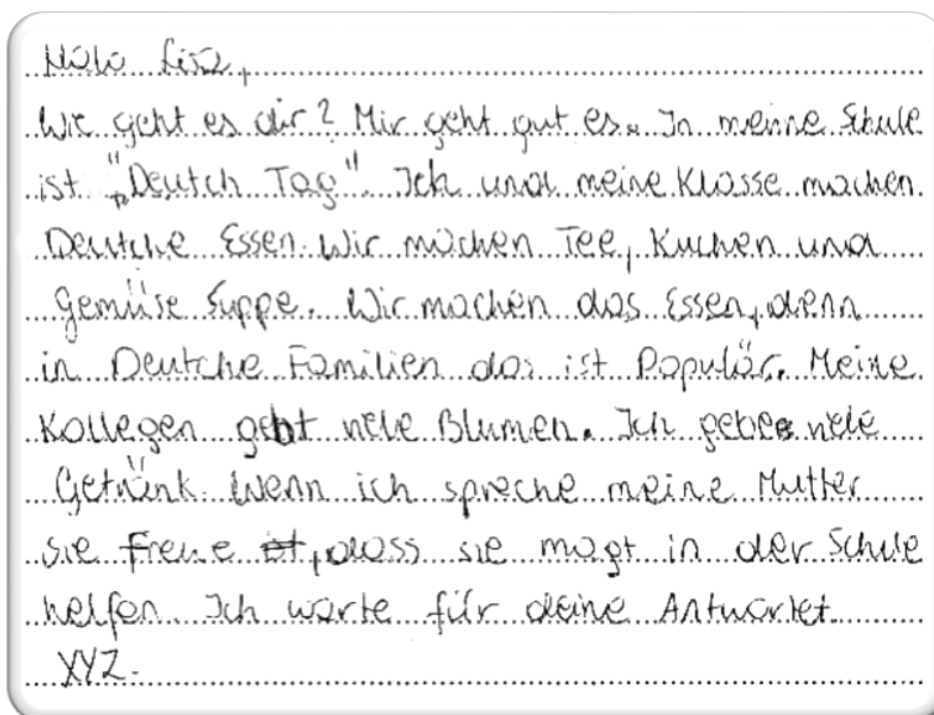 Halo Lisa,
Wie geht es dir? Mir geht gut es. In meine Schule
ist "Deutch Tag". Ich und meine Klasse machen
Deutche Essen. Wir machen Tee, Kuchen und
Gemüse Suppe. Wir machen das Essen, denn
in Deutche Familien das ist Populär. Meine
Kollegen gebt viele Blumen. Ich gebe viele
Getränk. Wenn ich spreche meine Mutter
sie freue, dass sie magt in der Schule
helfen. Ich warte für deine Antwortet.
XYZ.